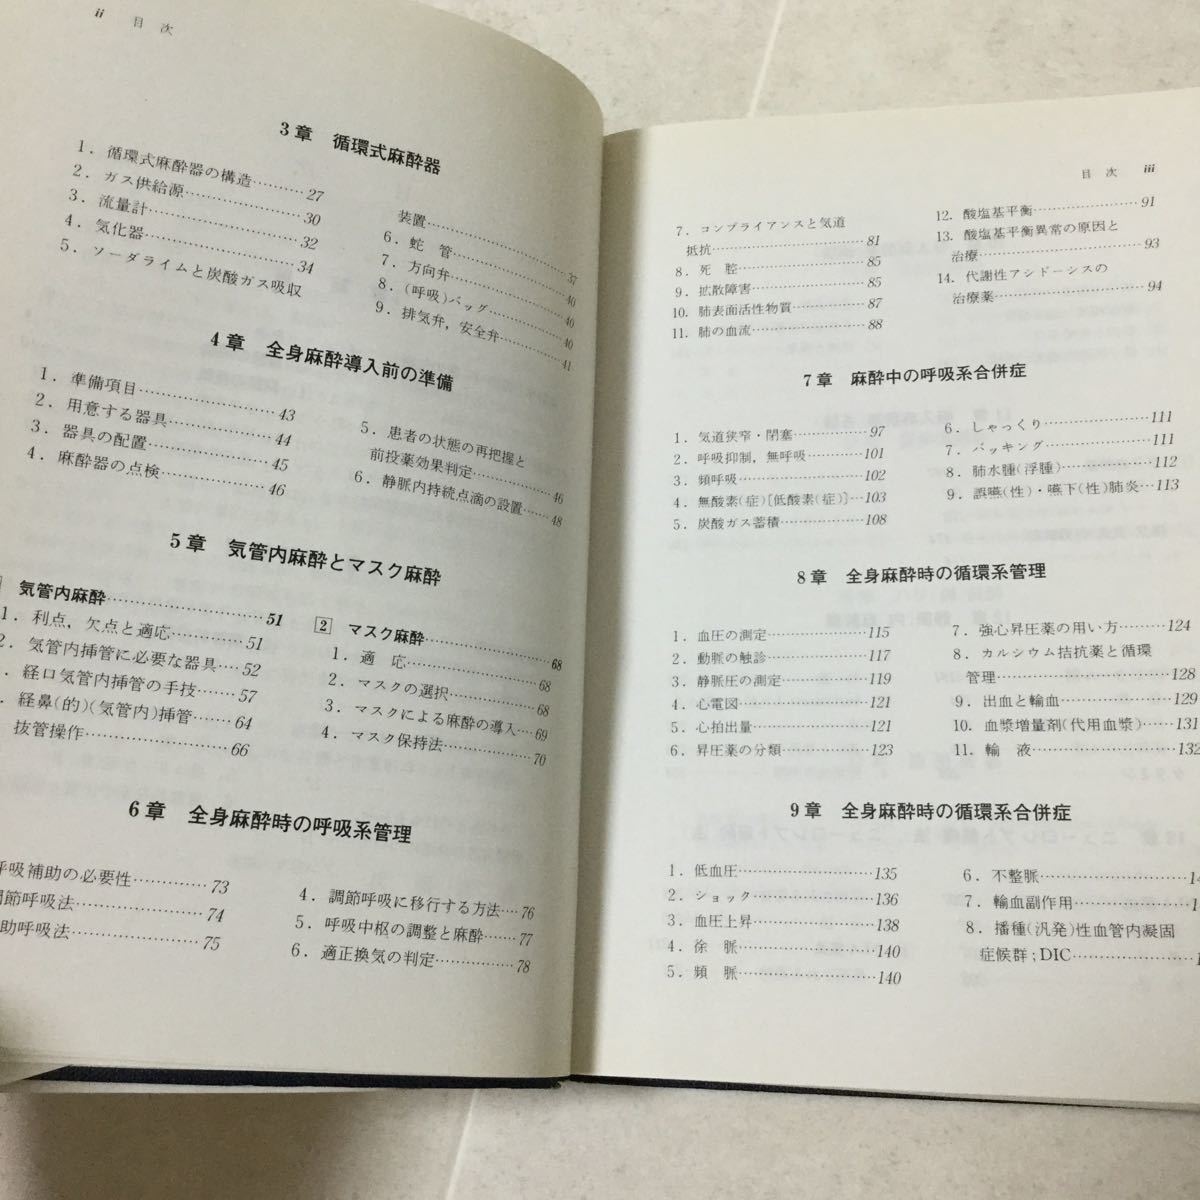 ii 目 次
3章 循環式麻酔器
1. 循環式麻酔器の構造………27
2. ガス供給源………30
3. 流量計………32
4. 気化器………34
5. ソーダライムと炭酸ガス吸収
装置………37
6. 蛇 管………40
7. 方向弁………40
8. (呼吸)バッグ………40
9. 排気弁, 安全弁………41
4章 全身麻酔導入前の準備
1. 準備項目………43
2. 用意する器具………44
3. 器具の配置………45
4. 麻酔器の点検………46
5. 患者の状態の再把握と
前投薬効果判定………46
6. 静脈内持続点滴の設置……48
5章 気管内麻酔とマスク麻酔
気管内麻酔………51
1. 利点, 欠点と適応………51
2. 気管内挿管に必要な器具……52
. 経口気管内挿管の手技……57
. 経鼻(的)(気管内)挿管……64
抜管操作………66
2 マスク麻酔………68
1. 適 応………68
2. マスクの選択………68
3. マスクによる麻酔の導入…69
4. マスク保持法………70
6章 全身麻酔時の呼吸系管理
呼吸補助の必要性………73
調節呼吸法………74
助呼吸法………75
4. 調節呼吸に移行する方法……76
5. 呼吸中枢の調整と麻酔……77
6. 適正換気の判定………78
目 次 iii
7. コンプライアンスと気道
抵抗………81
8. 死 腔………85
9. 拡散障害………85
10. 肺表面活性物質………87
11. 肺の血流………88
12. 酸塩基平衡………91
13. 酸塩基平衡異常の原因と
治療………93
14. 代謝性アシドーシスの
治療薬………94
7章 麻酔中の呼吸系合併症
1. 気道狭窄・閉塞………97
2. 呼吸抑制, 無呼吸………101
3. 頻呼吸………102
4. 無酸素(症)[低酸素(症)]…103
5. 炭酸ガス蓄積………108
6. しゃっくり………111
7. バッキング………111
8. 肺水腫(浮腫)………112
9. 誤嚥(性)・嚥下(性)肺炎…113
8章 全身麻酔時の循環系管理
1. 血圧の測定………115
2. 動脈の触診………117
3. 静脈圧の測定………119
4. 心電図………121
5. 心拍出量………121
6. 昇圧薬の分類………123
7. 強心昇圧薬の用い方………124
8. カルシウム拮抗薬と循環
管理………128
9. 出血と輸血………129
10. 血漿増量剤(代用血漿)……131
11. 輸 液………132
9章 全身麻酔時の循環系合併症
1. 低血圧………135
2. ショック………136
3. 血圧上昇………138
4. 徐 脈………140
5. 頻 脈………140
6. 不整脈………14
7. 輸血副作用………1
8. 播種(汎発)性血管内凝固
症候群;DIC………1